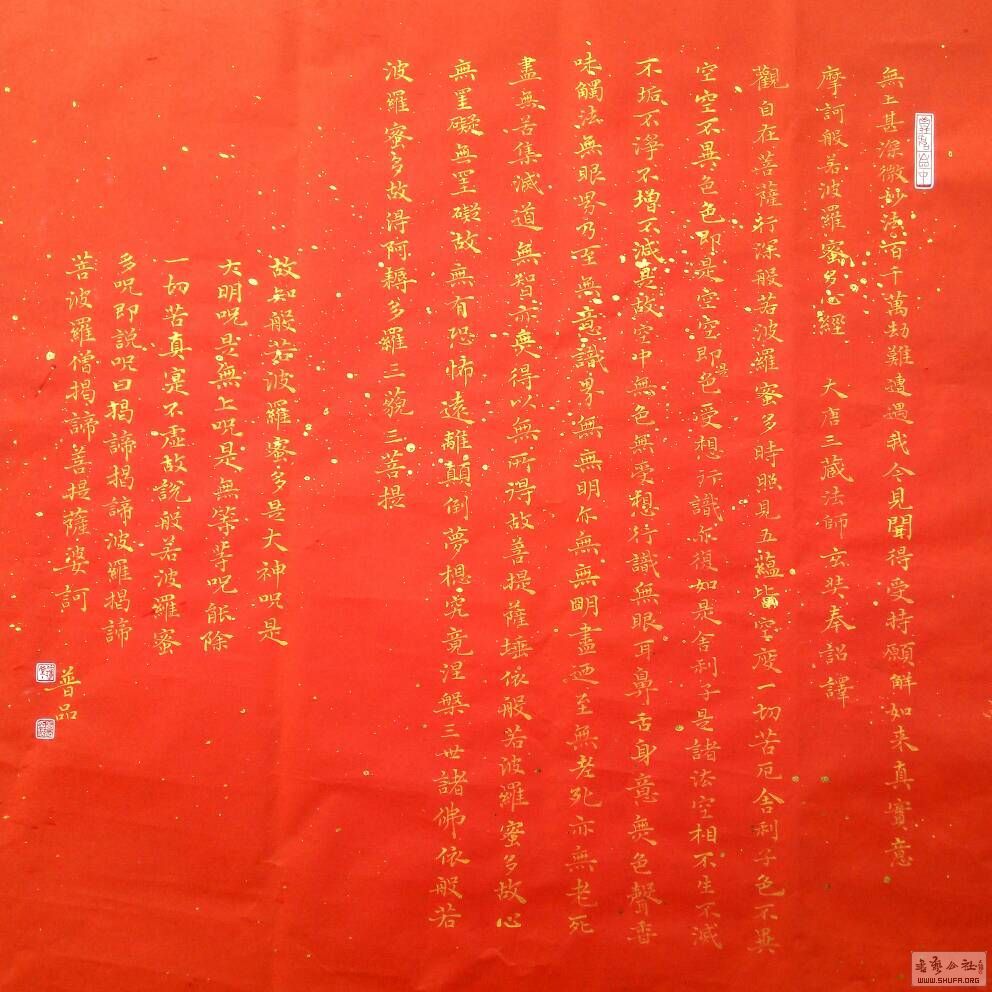 無上甚深微妙法百千萬劫難遭遇我今見聞得受持願解如来真實意
摩訶般若波羅蜜多心經 大唐三藏法師玄奘奉詔譯
觀自在菩薩行深般若波羅蜜多時照見五蘊皆空度一切苦厄舍利子色不異
空空不異色色即是空空即是色受想行識亦復如是舍利子是諸法空相不生不滅
不垢不淨不增不減是故空中無色無受想行識無眼耳鼻舌身意無色聲香
味觸法無眼界乃至無意識界無無明亦無無明盡迺至無老死亦無老死
盡無苦集滅道無智亦無得以無所得故菩提薩埵依般若波羅蜜多故心
無罣礙無罣礙故無有恐怖遠離顛倒夢想究竟涅槃三世諸佛依般若
波羅蜜多故得阿耨多羅三藐三菩提
故知般若波羅蜜多是大神呪是
大明呪是無上呪是無等等呪能除
一切苦真寔不虛故說般若波羅蜜
多呪即說呪曰揭諦揭諦波羅揭諦
菩波羅僧揭諦菩提薩婆訶
普品
書法公社
WWW.SHUFA.ORG